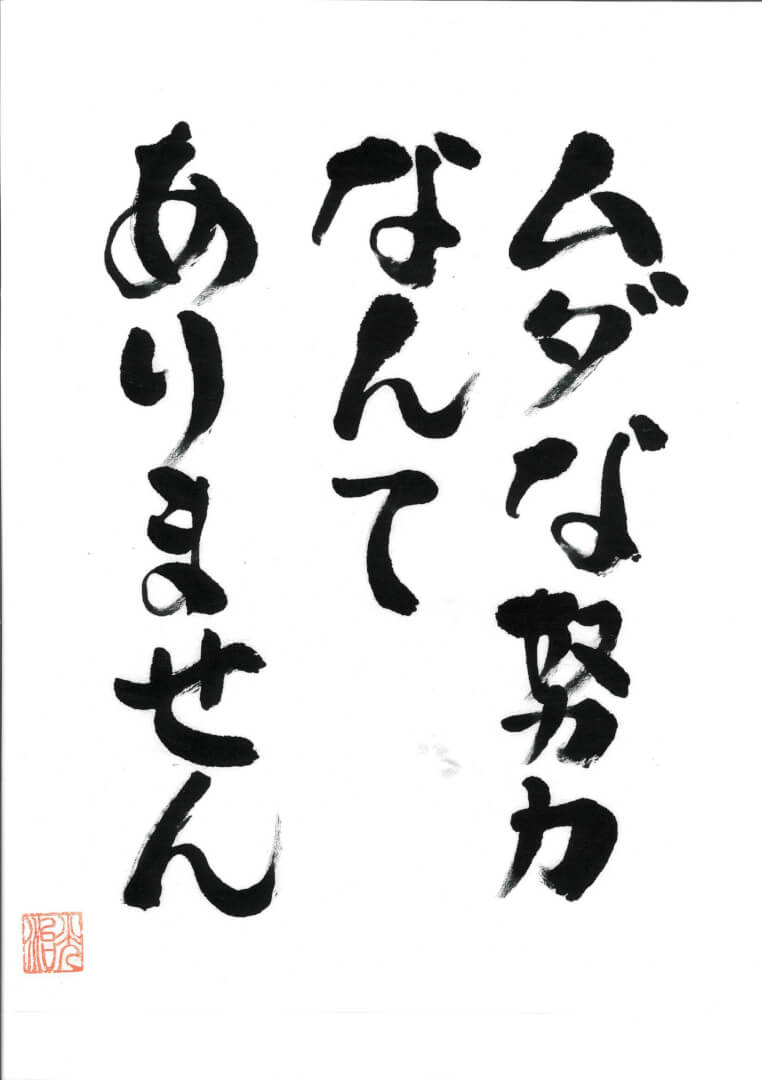 ムダな努力
なんて
ありません